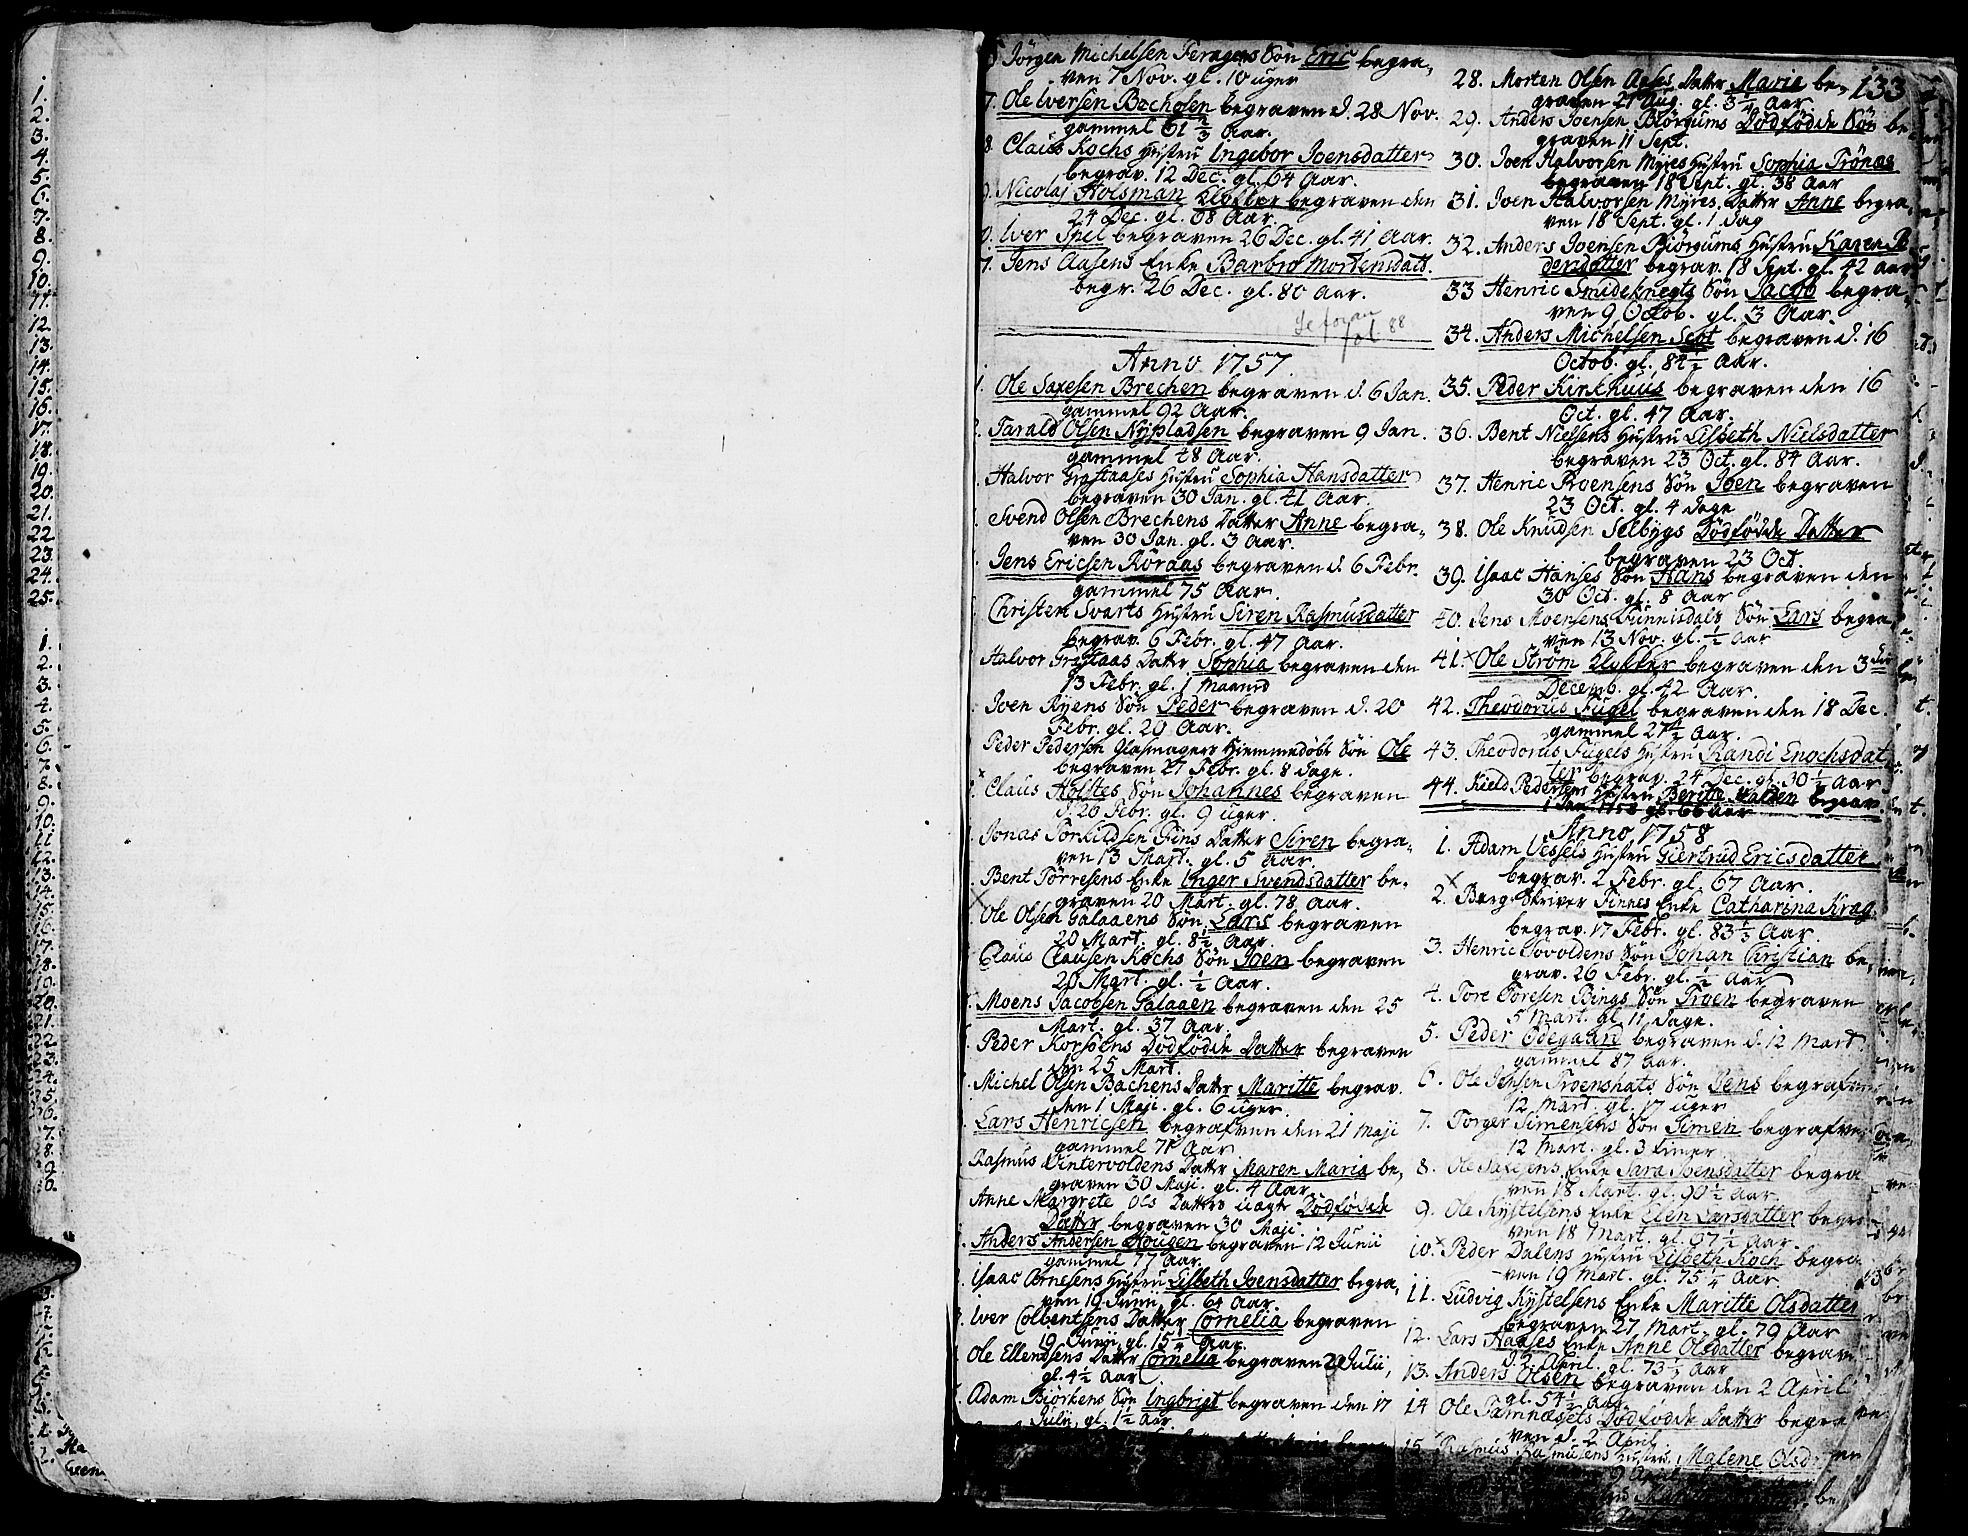 Jörgen Michelsen Feragens Sön Eric begra-
ven 7 Nov. gl. 10 uger
7. Ole Iversen Bachosen begraven d. 28 Nov.
gammel 61 2/3 Aar.
8. Claus Kochs Hustru Ingebor Joensdatter
begrav. 12 Dec. gl. 64 Aar.
Nicolaj Holsman Klokker begraven den
24 Dec. gl. 68 Aar.
0. Iver Spel begraven 26 Dec. gl. 41 Aar.
1. Jens Aasens Enke Barbro Mortensdatt.
begr. 26 Dec. gl. 80 Aar.
Se foran
fol. 88
Anno 1757.
1. Ole Saxesen Brechen begraven d. 6 Jan.
gammel 92 Aar.
Tarald Olsen Nypladsen begraven 9 Jan.
gammel 48 Aar.
Halvor Grøstaases Hustru Sophia Hansdatter
begraven 30 Jan. gl. 41 Aar.
Svend Olsen Brechens Datter Anne begra-
ven 30 Jan. gl. 3 Aar.
Jens Ericsen Röraas begraven d. 6 Febr.
gammel 75 Aar.
Christen Svarts Hustru Siren Rasmusdatter
begrav. 6 Febr. gl. 47 Aar.
Halvor Datter Sophia begraven den
13 Febr. gl. 1 Maaned
Joen Ryens Sön Peder begraven d. 20
Febr. gl. 20 Aar.
Peder Pedersen Glasmagers Hiemmedöbt Sön Ole
begraven 27 Febr. gl. 8 Dage.
Claus Holstes Sön Johannes begraven
20 Febr. gl. 9 uger.
Jonas Datter Siren begra-
ven 13 Mart. gl. 5 Aar.
Bent Törresens Enke Inger Svendsdatter be-
graven 20 Mart. gl. 78 Aar.
Ole Olsen Galaaens Sön Lars begraven
20 Mart. gl. 8 1/2 Aar.
Claus Clausen Kochs Sön Joen begraven
20 Mart. gl. 1/2 Aar.
Moens Jacobsen Galaaen begraven den 25
Mart. gl. 37 Aar.
Peder Korsöens Dödfödde Datter begraven
den 25 Mart.
Michel Olsen Bachens Datter Maritte begrav.
den 1 Maji. gl. 6 uger.
Lars Henricsen begrafven den 21 Maji
gammel 71 Aar.
Rasmus Vintervoldens Datter Maren Maria be-
graven 30 Maji. gl. 4 Aar.
Anne Margrete Ols Datters uægte Dödfödde
Datter begraven 30 Maji.
Anders Andersen Hougen begraven 12 Junii
gammel 77 Aar.
Isaac Arnesens Hustru Lisbeth Joensdatter begra-
ven 19 Junii gl. 64 Aar.
Iver Colbentsens Datter Cornelia begraven
19 Junii gl. 15 1/4 Aar.
Ole Ellendsens Datter Cornelia begraven 2 Julii,
gl. 4 1/2 Aar.
Adam Biörkens Sön Ingbrigt begraven den 17
Julii gl. 1 1/2 Aar.
133
28. Morten Olsen Aases Datter Marie be-
graven 21 Aug. gl. 3 1/4 Aar
29. Anders Joensen Biörgums Dödfödde Sön be-
graven 11 Sept.
30. Joen Halvorsen Myres Hustru Sophia Trönæs
begraven 18 Sept. gl. 38 Aar
31. Joen Halvorsen Myres Datter Anne begra-
ven 18 Sept. gl. 1 Dag
32. Anders Joensen Biörgums Hustru Karen P
dersdatter begrav. 18 Sept. gl. 42 Aar
33 Henric Smideknegts Sön Jacob begra-
ven 9 Octob. gl. 3 Aar.
34. Anders Michelsen Sept begraven d. 16
Octob. gl. 84 1/2 Aar.
35. Peder Kirkhuus begraven den 16
Oct. gl. 47 Aar.
36. Bent Nielsens Hustru Lisbeth Nielsdatter
begraven 23 Oct. gl. 84 Aar.
37. Henric Proensens Sön Joen begraven
23 Oct. gl. 4 Dage
38. Ole Knudsen Selbygs Dödfödde Datter
begraven 23 Oct.
39. Isaac Hanses Sön Hans begraven den
30 Oct. gl. 8 Aar
40. Jens Moensens Sön Lars begra
ven 13 Nov. gl. 1/2 Aar
41. Ole Ström Klokker begraven den 3die
Decemb. gl. 42 Aar.
42. Theodorus Fugel begraven den 18 Dec.
gammel 27 1/2 Aar.
43. Theodorus Fugels Hustru Randi Enochsdat
ter begrav. 24 Dec. gl. 30 1/2 Aar
44. Kield Pedersens Hustru Berethe begrav
1 Jan. 1758 gl. 66 Aar
Anno 1758
1. Adam Vessels Hustru Giertrud Ericsdatter
begrav. 2 Febr. gl. 67 Aar.
2. Berg Skriver Finnes Enke Catharina Krag
begrav. 17 Febr. gl. 83 1/3 Aar
3. Henric Sön Johan Christian be-
grav. 26 Febr. gl. 1/2 Aar
4. Tore Toresen Bings Sön Troen begraven
5 Mart. gl. 11 Dage.
5. Peder Ödegaard begraven d. 12 Mart
gammel 87 Aar.
6. Ole Jensen Troenshats Sön Jens begrafven
12 Mart. gl. 17 uger
7. Torger Simensens Sön Simen begrafve
12 Mart. gl. 3 timer
8. Ole Saxesens Enke Sara Joensdatter begra
ven 18 Mart. gl. 90 1/2 Aar.
9. Ole Kystelsens Enke Elen Larsdatter begra
ven 18 Mart. gl. 67 1/2 Aar.
10. Peder Dalens Hustru Lisbeth Koch begra
ven 19 Mart. gl. 75 1/4 Aar.
11. Ludvig Kystelsens Enke Maritte Olsdatter
begraven 27 Mart. gl. 79 Aar
12. Lars Haases Enke Anne Olsdatter begrav
d. 2 April. gl. 73 1/2 Aar
13. Anders Olsen begraven den 2 April
gl. 54 1/2 Aar
14 Ole Tamnæsets Dödfödde Datter begra
ven d. 2 April
15. Rasmus Rasmusens Hustru Malene Olsd
9 April